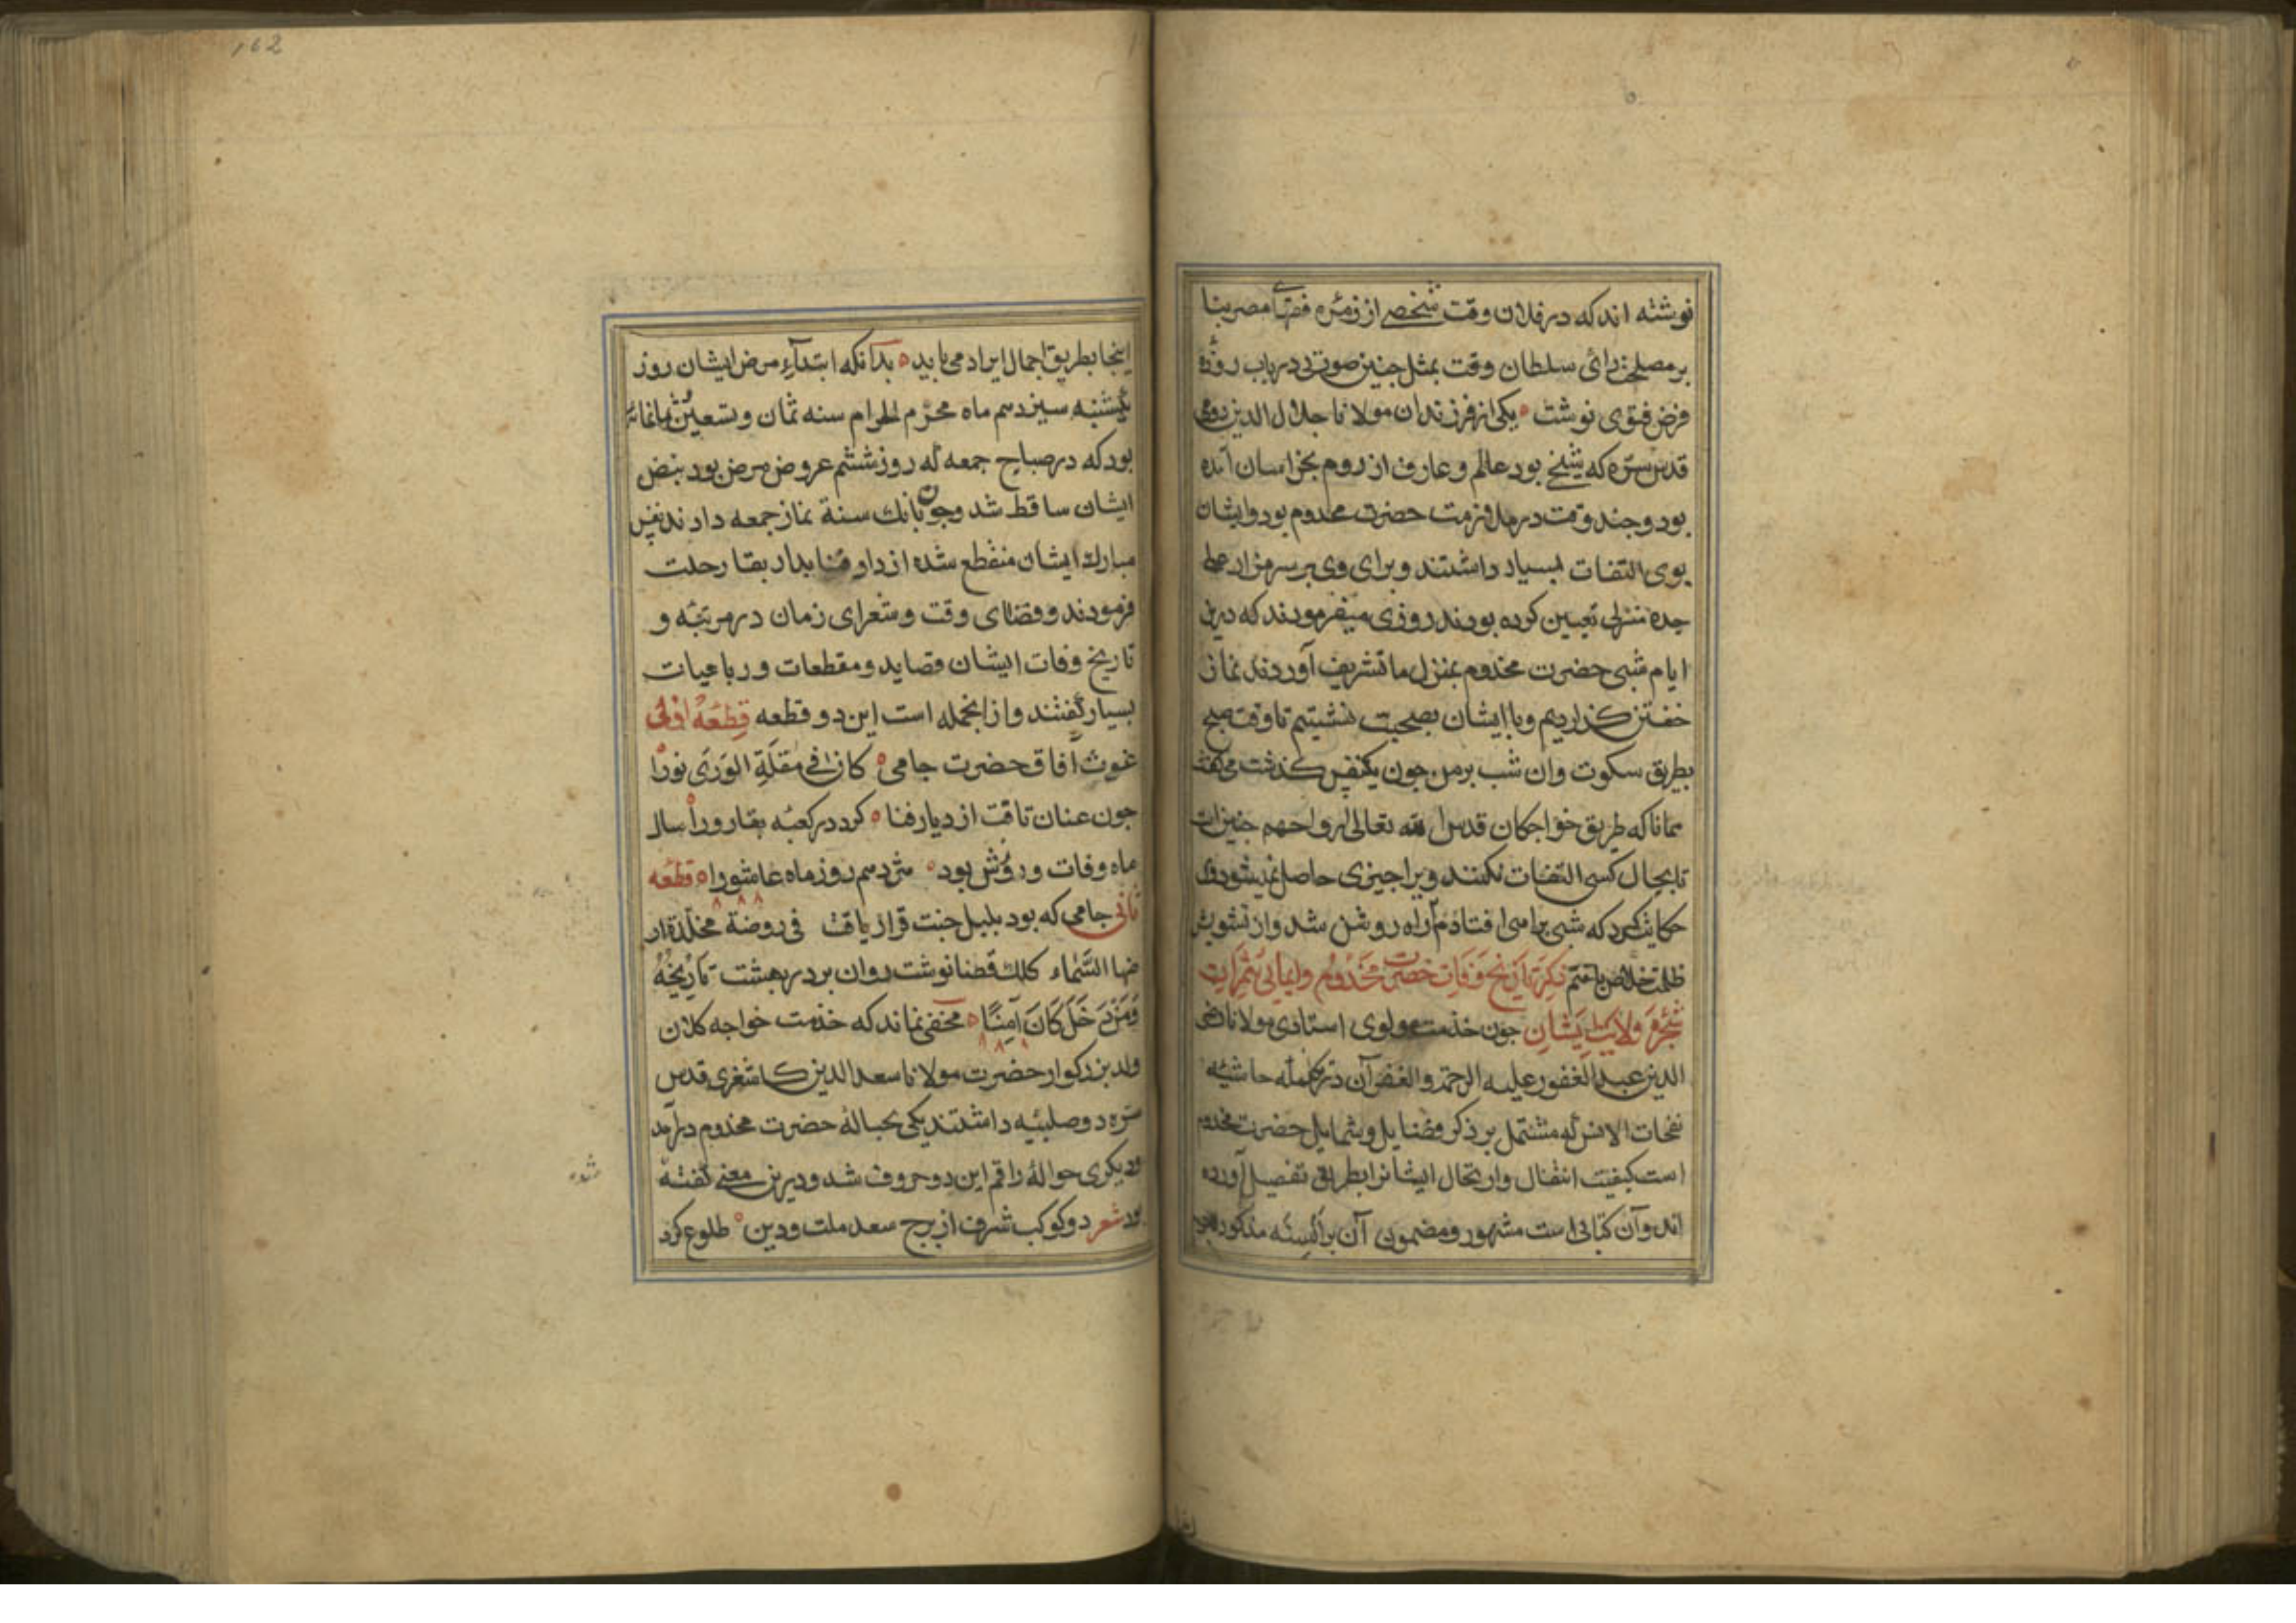 نوشته اند که در فلان وقت شخصی از زمره فقهای مصر بنا
بر مصلحت رائ سلطان وقت بمثل جنین صورتی در باب روزه
فرض فتوی نوشت یکی از فرزندان مولانا جلال الدین رومی
قدس سره که شیخی بود عالم و عارف از روم بخراسان آمده
بود و جند وقت در ملازمت حضرت مخدوم بود و ایشان
بوی التفات بسیار داشتند و برای وی بر سر مزار
جده منزلی تعیین کرده بودند روزی میفرمودند که درین
ایام شبی حضرت مخدوم بمنزل ما تشریف آوردند نماز
خفتن کذاردیم و با ایشان بصحبت نشستیم تا وقت صبح
بطریق سکوت وان شب بر من جون یکنفس کذشت می کفتند
همانا که طریق خواجکان قدس الله تعالی ارواحهم جنین است
تا بحال کسی التفات نکنند ویرا جیزی حاصل نمیشود وی
حکایت کرد که شبی براهی افتادم آن راه روشن شد و از تشویش
ظلمت خلاص یافتم ذکر تاریخ وفات حضرت مخدوم وایمایی بثمرات
شجره ولایت ایشان جون خدمت مولوی استادی مولانا رضی
الدین عبد الغفور علیه الرحمة والغفران در تکمله حاشیه
نفحات الانس که مشتمل بر ذکر فضایل و شمایل حضرت مخدوم
است کیفیت انتقال وارتحال ایشانرا بطریق تفصیل آورده
اند و آن کتابی است مشهور و مضمون آن بر السنه مذکور
162
اینجا بطریق اجمال ایراد می یابید بدآنکه ابتدآء مرض ایشان روز
یکشنبه سیزدهم ماه محرم الحرام سنه ثمان وتسعین وثمانمائه
بود که در صباح جمعه که روز ششم عروض مرض بود نبض
ایشان ساقط شد وجون بانك سنة نماز جمعه دادند نفس
مبارك ایشان منقطع شده از دار فنا بدار بقا رحلت
فرمودند و فضلای وقت و شعرای زمان در مرتبه و
تاریخ وفات ایشان قصاید و مقطعات و رباعیات
بسیار کفتند و از انجمله است این دو قطعه قطعهٔ اولی
غوث آفاق حضرت جامی کان فی مقلة الوری نورا
جون عنان تافت از دیار فنا کرد در کعبه بقا رو را سال
ماه وفات و روزش بود هژدهم روز ماه عاشورا قطعه
ثانی جامی که بود بلبل جنت قرار یافت فی روضة مخلدة ار
ضها السماء کلك قضا نوشت روان بر در بهشت تاریخه
ومن دخل کان آمنا مخفی نماند که خدمت خواجه کلان
ولد بزرکوار حضرت مولانا سعد الدین کاشغری قدس
سره دو صلبیه داشتند یکی بحبالهٔ حضرت مخدوم درآمد
ودیکری حوالهٔ راقم این دو حروف شد و درین معنی کفته
شده
بود شعر دو کوکب شرف از برج سعد ملت و دین طلوع کرد